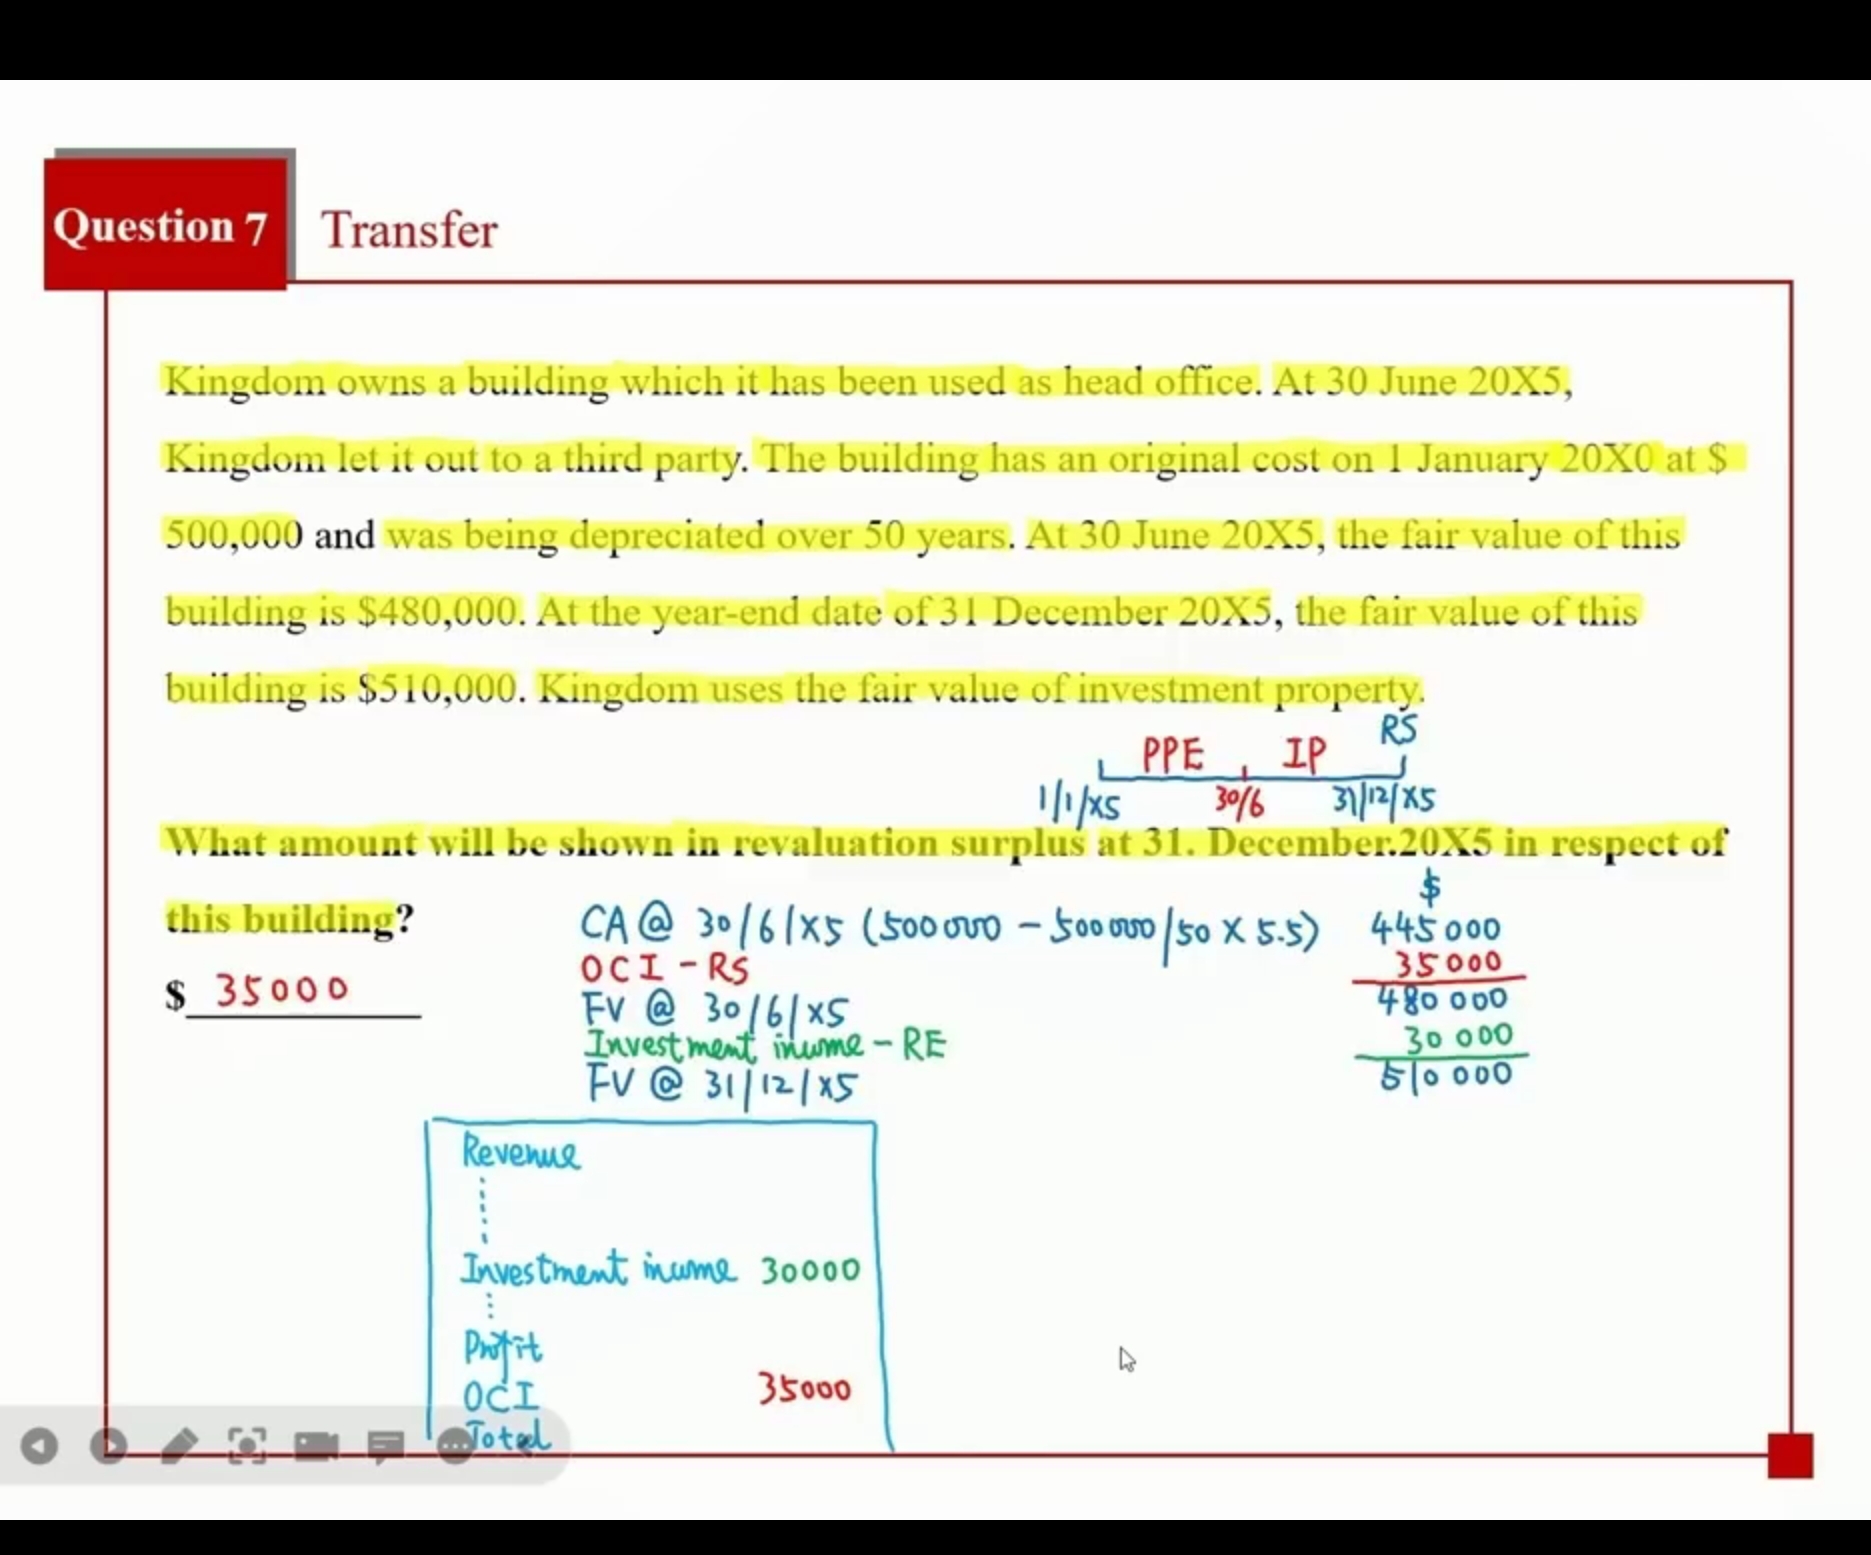 Question 7
Transfer
Kingdom owns a building which it has been used as head office. At 30 June 20X5,
Kingdom let it out to a third party. The building has an original cost on 1 January 20X0 at $
500,000 and was being depreciated over 50 years. At 30 June 20X5, the fair value of this
building is $480,000. At the year-end date of 31 December 20X5, the fair value of this
building is $510,000. Kingdom uses the fair value of investment property.
RS
PPE IP
1/1/X5 30/6 31/12/X5
What amount will be shown in revaluation surplus at 31. December.20X5 in respect of
this building?
$
CA @ 30/6/X5 (500000 - 500000/50 X 5.5) 445000
OCI - RS 35000
$ 35000
FV @ 30/6/X5 480000
Investment inume - RE 30000
FV @ 31/12/X5 510000
Revenue
Investment inume 30000
Profit
OCI 35000
Total